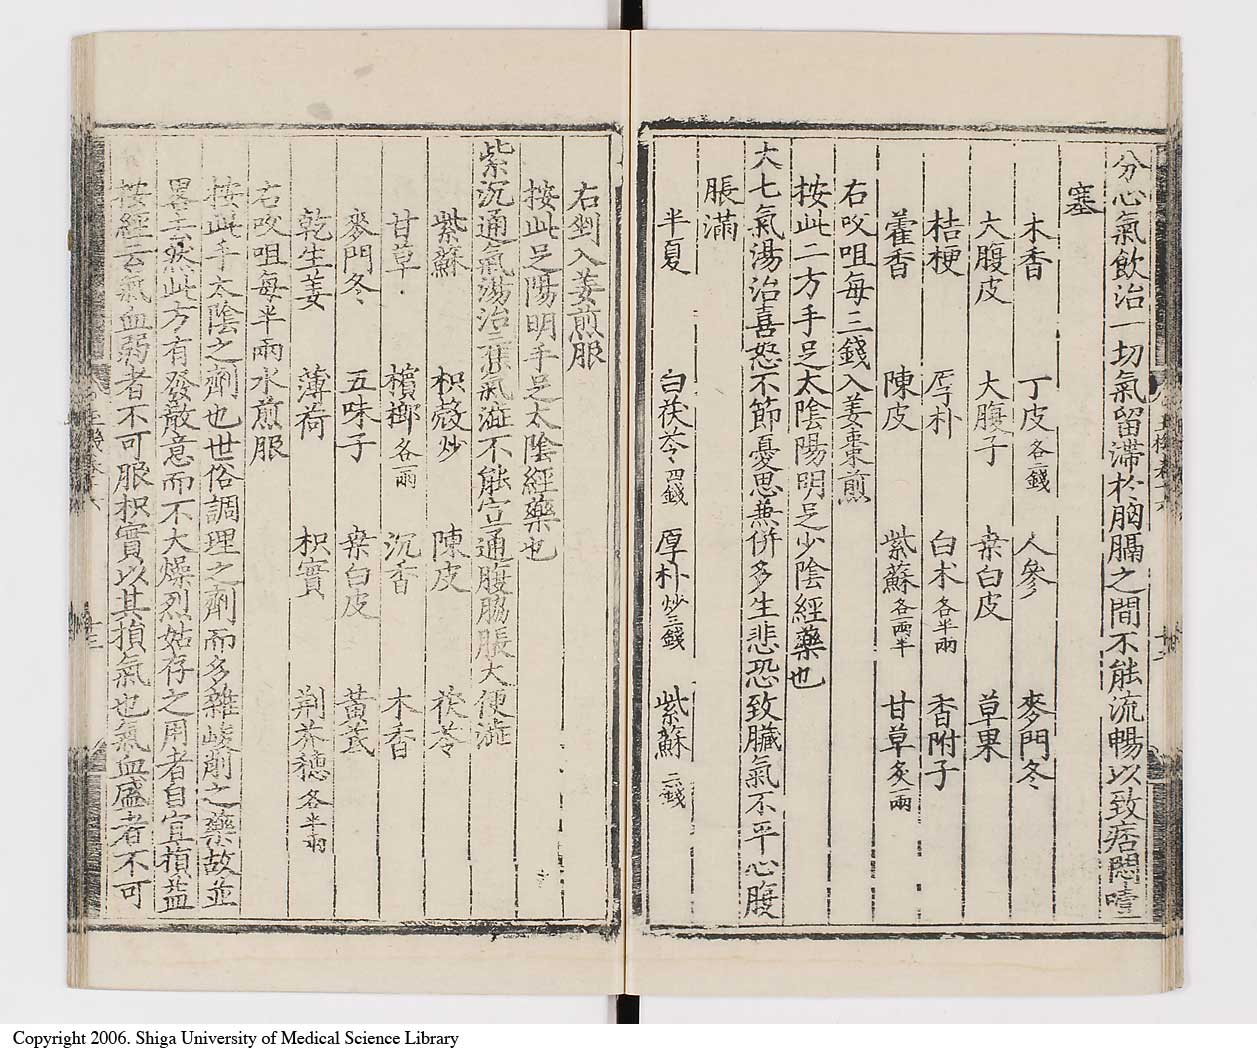 分心氣飲治一切氣留滯於胸膈之間不能流暢以致痞悶噎
塞
木香 丁皮各二錢 人參 麥門冬
大腹皮 大腹子 桒白皮 草果
桔梗 厚朴 白术各半兩 香附子
藿香 陳皮 紫蘇各一兩半 甘草炙一兩
右㕮咀每三錢入姜棗煎
按此二方手足太陰陽明足少陰經藥也
大七氣湯治喜怒不節憂思兼併多生悲恐致臟氣不平心腹
脹滿
半夏 白茯苓四錢 厚朴炒三錢 紫蘇二錢
右剉入姜煎服
按此足陽明手足太陰經藥也
紫沉通氣湯治三焦氣澁不能宣通腹脇脹大便澁
紫蘇 枳殼炒 陳皮 茯苓
甘草 檳榔各一兩 沉香 木香
麥門冬 五味子 桒白皮 黃芪
乾生姜 薄荷 枳實 荆芥穗各半兩
右㕮咀每半兩水煎服
按此手太陰之劑也世俗調理之劑而多雜峻削之藥故並
畧去然此方有發散意而不大燥烈姑存之用者自宜損益
按經云氣血弱者不可服枳實以其損氣也氣血盛者不可
Copyright 2006. Shiga University of Medical Science Library